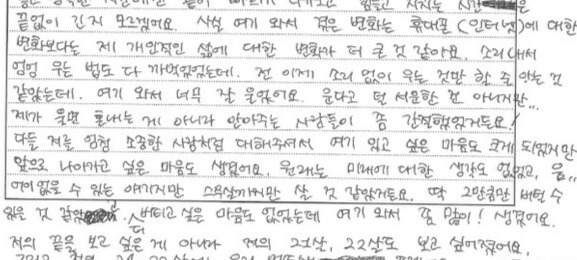 끝없이 긴지 모르겠어요. 사실 여기 와서 겪은 변화는 휴대폰(인터넷)에 대한
변화보다는 제 개인적인 삶에 대한 변화가 더 큰 것 같아요. 소리내서
엉엉 우는 법도 다 까먹었었는데. 전 이제 소리 없이 우는 것만 할 수 있는 것
같았는데. 여기 와서 너무 잘 울었어요. 운다고 덜 서운한 건 아니지만...
제가 울면 혼내는 게 아니라 안아주는 사람들이 좀 간절했었거든요!
다들 저를 엄청 소중한 사람처럼 대해주셔서 여기 있고 싶은 마음도 크게 되었지만
앞으로 나아가고 싶은 마음도 생겼어요. 원래는 미래에 대한 생각도 없었고, 음..
어이없을 수 있는 얘기지만 스무살까지만 살 것 같았거든요. 딱 2만큼만 버틸 수
있을 것 같았 더 버티고 싶은 마음도 없었는데 여기 와서 좀 많이! 생겼어요.
저의 끝을 보고 싶은 게 아니라 저의 21살, 22살도 보고 싶어졌어요.